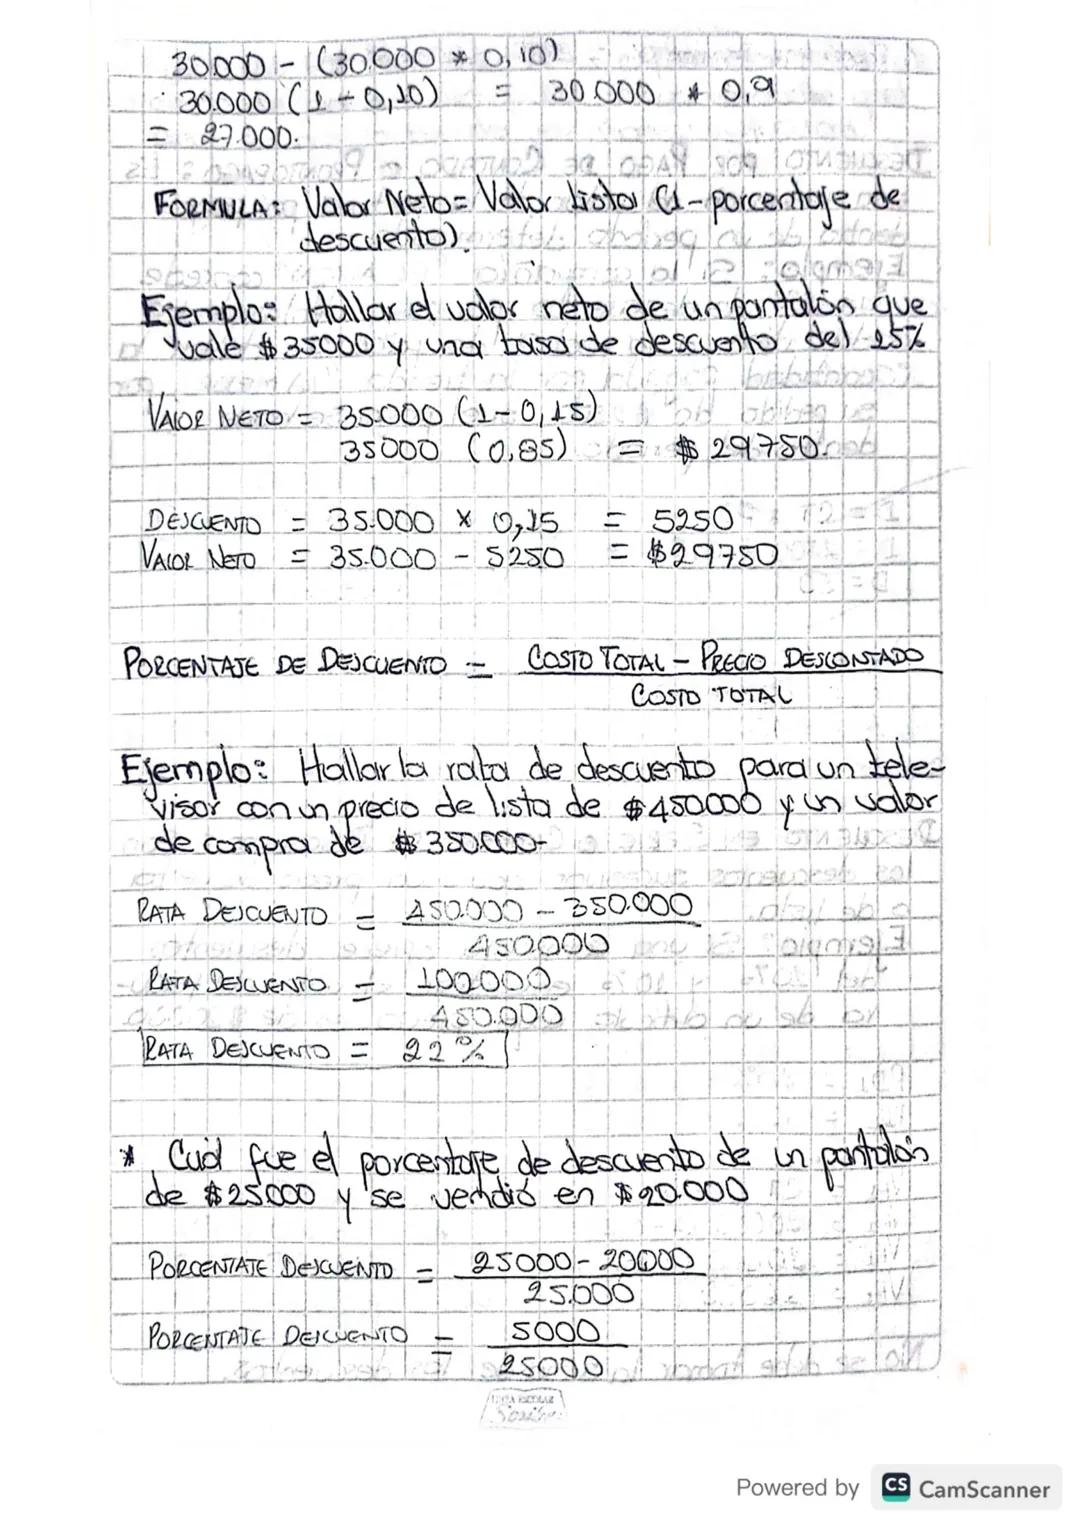 30.000 - (30.000 * 0,10)
30.000 (1 - 0,10) = 30.000 * 0,9
= 27.000.
FORMULA: Valor Neto = Valor Lista (1 - porcentaje de
descuento).
Ejemplo: Hallar el valor neto de un pantalón que
vale $35000 y una tasa de descuento del 15%
VALOR NETO = 35.000 (1 - 0,15)
35000 (0,85) = $29750.
DESCUENTO = 35.000 x 0,15 = 5250
VALOR NETO = 35.000 - 5250 = $29750
PORCENTAJE DE DESCUENTO = COSTO TOTAL - PRECIO DESCONTADO
COSTO TOTAL
Ejemplo: Hallar la rata de descuento para un tele-
visor con un precio de lista de $450.000 y un valor
de compra de $350.000-
RATA DESCUENTO = 450.000 - 350.000
450.000
RATA DESCUENTO = 100.000
450.000
RATA DESCUENTO = 22%
* Cuál fue el porcentaje de descuento de un pantalón
de $25000 y se vendió en $20.000
PORCENTAJE DESCUENTO = 25000 - 20000
25.000
PORCENTAJE DESCUENTO = 5000
25000
Scribe
Powered by CS CamScanner